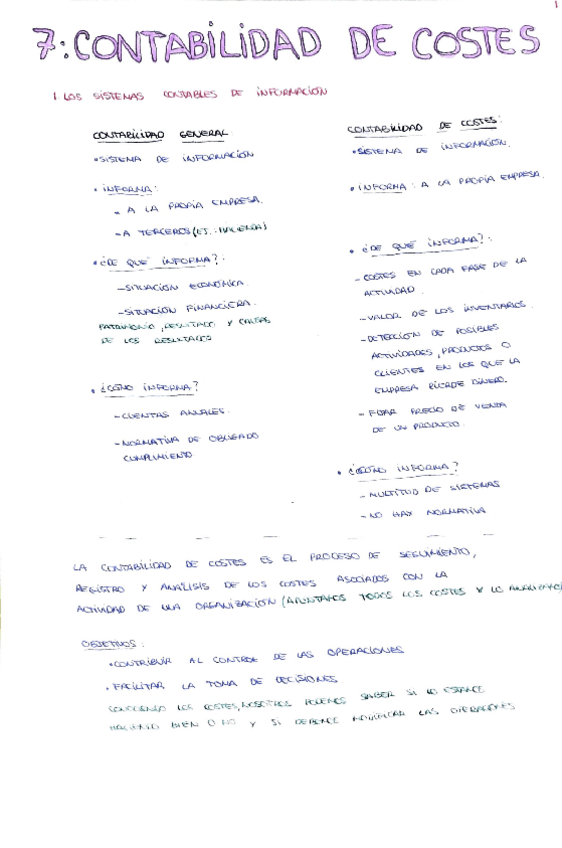 1
7: CONTABILIDAD DE COSTES
1 LOS SISTEMAS CONTABLES DE INFORMACIÓN
CONTABILIDAD GENERAL
• SISTEMA DE INFORMACIÓN
• INFORMA:
- A LA PROPIA EMPRESA.
- A TERCEROS (EJ.: HACIENDA)
• ¿DE QUÉ INFORMA?:
- SITUACIÓN ECONÓMICA.
- SITUACIÓN FINANCIERA.
PATRIMONIO, RESULTADO Y CAUSAS
DE LOS RESULTADOS
• ¿CÓMO INFORMA?
- CUENTAS ANUALES.
- NORMATIVA DE OBLIGADO
CUMPLIMIENTO
CONTABILIDAD DE COSTES:
• SISTEMA DE INFORMACIÓN.
• INFORMA: A LA PROPIA EMPRESA.
• ¿DE QUÉ INFORMA?:
- COSTES EN CADA FASE DE LA
ACTIVIDAD.
- VALOR DE LOS INVENTARIOS.
- DETECCIÓN DE POSIBLES
ACTIVIDADES, PRODUCTOS O
CLIENTES EN LOS QUE LA
EMPRESA PIERDE DINERO.
- FIJAR PRECIO DE VENTA
DE UN PRODUCTO.
• ¿CÓMO INFORMA?
- MULTITUD DE SISTEMAS
- NO HAY NORMATIVA
LA CONTABILIDAD DE COSTES ES EL PROCESO DE SEGUIMIENTO,
REGISTRO Y ANÁLISIS DE LOS COSTES ASOCIADOS CON LA
ACTIVIDAD DE UNA ORGANIZACIÓN (APUNTAMOS TODOS LOS COSTES Y LO ANALIZAMOS)
OBJETIVOS:
• CONTRIBUIR AL CONTROL DE LAS OPERACIONES
• FACILITAR LA TOMA DE DECISIONES
CONOCIENDO LOS COSTES, NOSOTROS PODEMOS SABER SI LO ESTAMOS
HACIENDO BIEN O NO Y SI DEBEMOS MODIFICAR LAS OPERACIONES